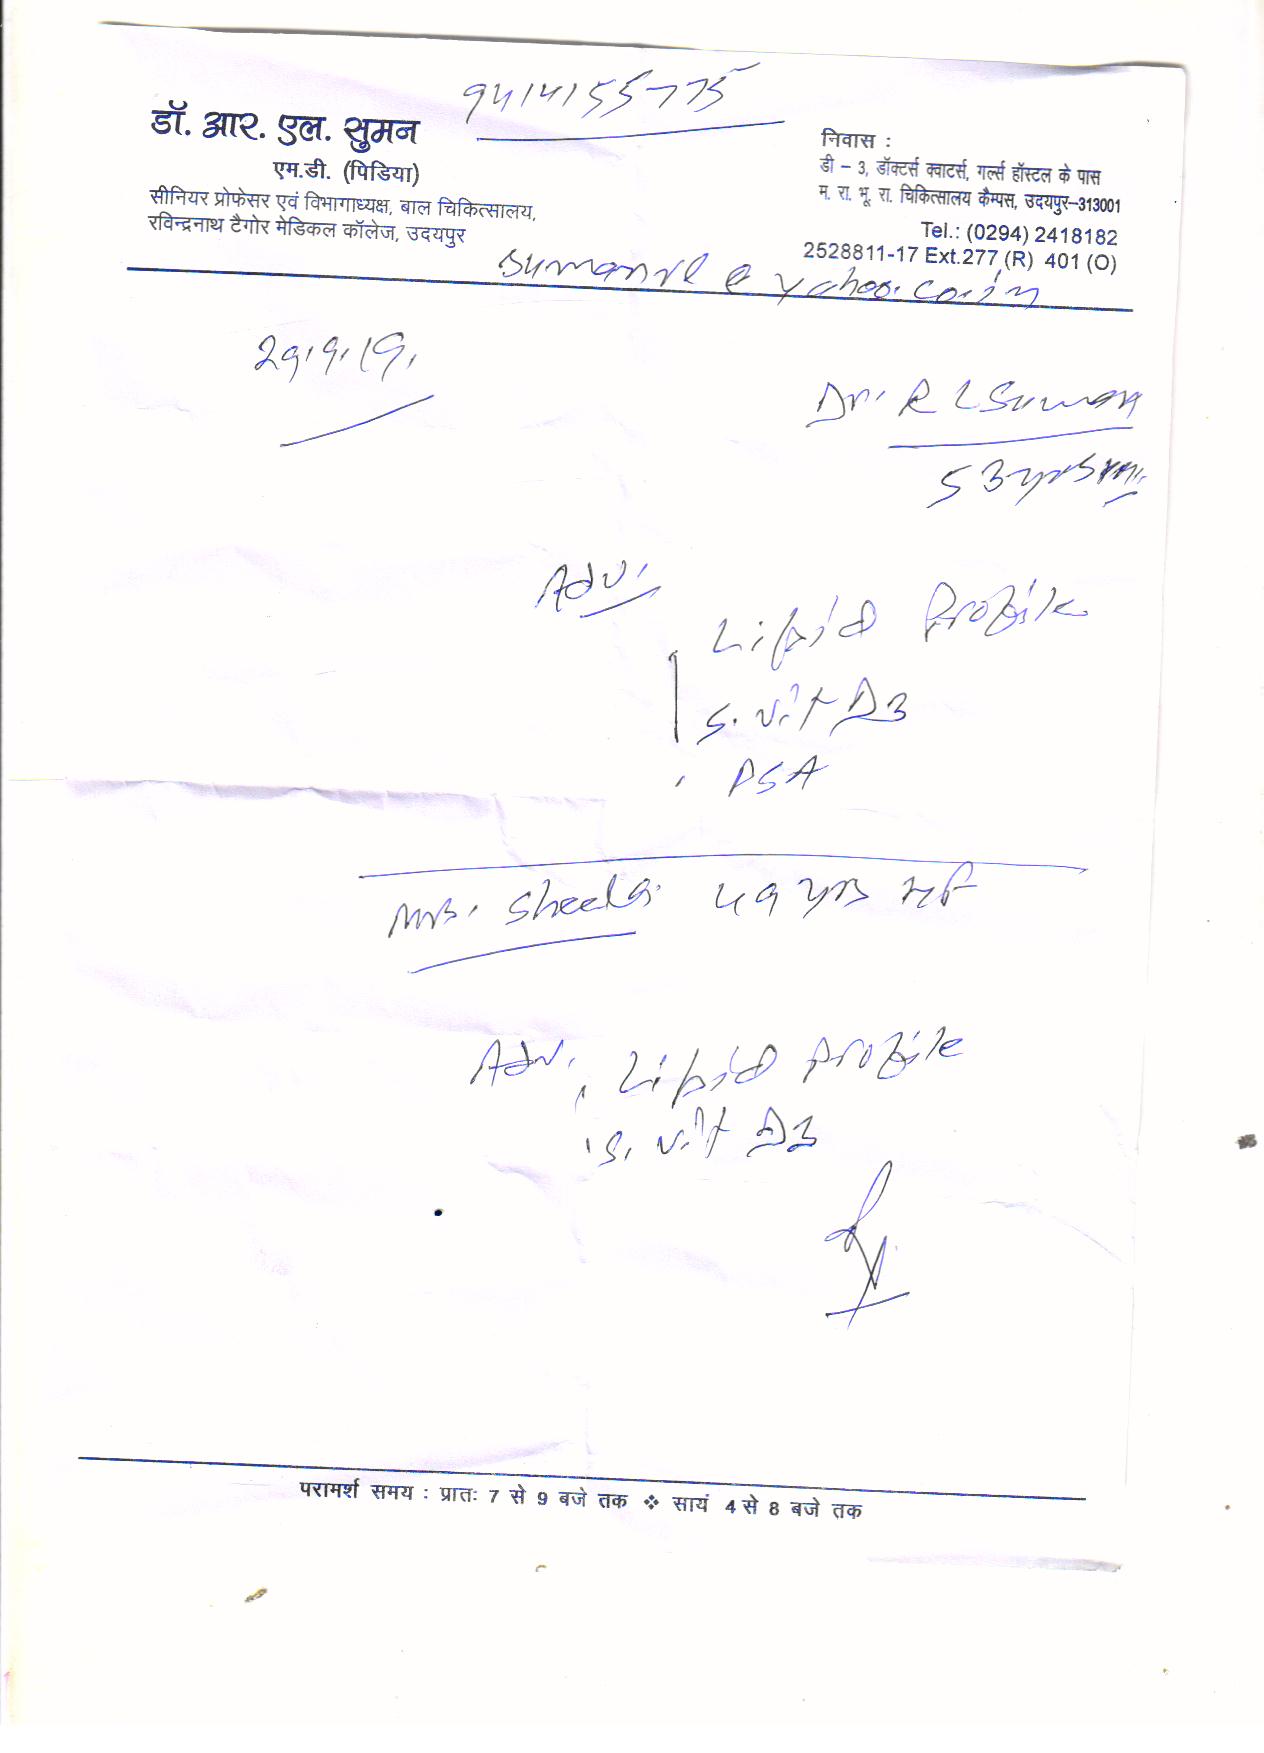 9414155775
डॉ. आर. एल. सुमन
एम.डी. (पिडिया)
सीनियर प्रोफेसर एवं विभागाध्यक्ष, बाल चिकित्सालय,
रविन्द्रनाथ टैगोर मेडिकल कॉलेज, उदयपुर
निवास :
डी – 3, डॉक्टर्स क्वाटर्स, गर्ल्स हॉस्टल के पास
म. रा. भू. रा. चिकित्सालय कैम्पस, उदयपुर–313001
Tel.: (0294) 2418182
2528811-17 Ext.277 (R) 401 (O)
sumanrl@yahoo.co.in
29.9.19.
Dr. R L Suman
53 yrs m.
Adv.
Lipid Profile
S. Vit D3
PSA
Mrs. Sheela 49 yrs
Adv. Lipid Profile
S. Vit D3
परामर्श समय : प्रातः 7 से 9 बजे तक ❖ सायं 4 से 8 बजे तक